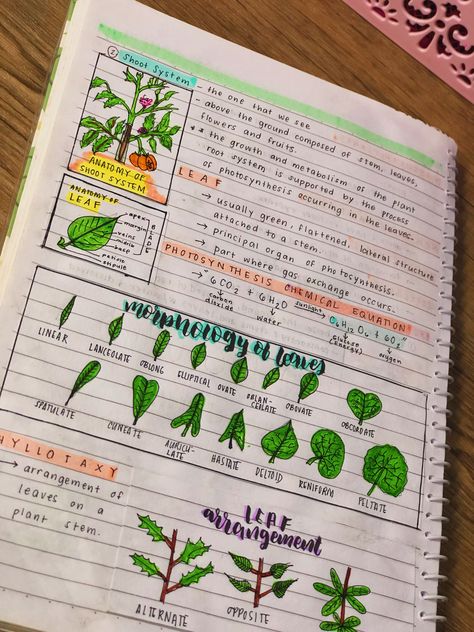 ② Shoot System
- the one that we see
- above the ground composed of stem, leaves,
flowers and fruits.
** the growth and metabolism of the plant
root system is supported by the process
of photosynthesis occurring in the leaves.
ANATOMY OF
SHOOT SYSTEM
LEAF
→ usually green, flattened, lateral structure
attached to a stem.
→ principal organ of photosynthesis.
→ part where gas exchange occurs.
ANATOMY OF
LEAF
apex
margin
veins
midrib
base
petiole
stipule
BLADE
PHOTOSYNTHESIS CHEMICAL EQUATION
→ " 6CO2 + 6H2O sunlight→ C6H12O6 + 6O2 "
carbon
dioxide
water
glucose
(energy)
oxygen
morphology of leaves
LINEAR
LANCEOLATE
OBLONG
ELLIPTICAL
OVATE
OBLAN-
CEOLATE
OBOVATE
OBCORDATE
SPATULATE
CUNEATE
AURICU-
LATE
HASTATE
DELTOID
RENIFORM
PELTATE
HYLLOTAXY
→ arrangement of
leaves on a
plant stem.
LEAF
arrangement
ALTERNATE
OPPOSITE